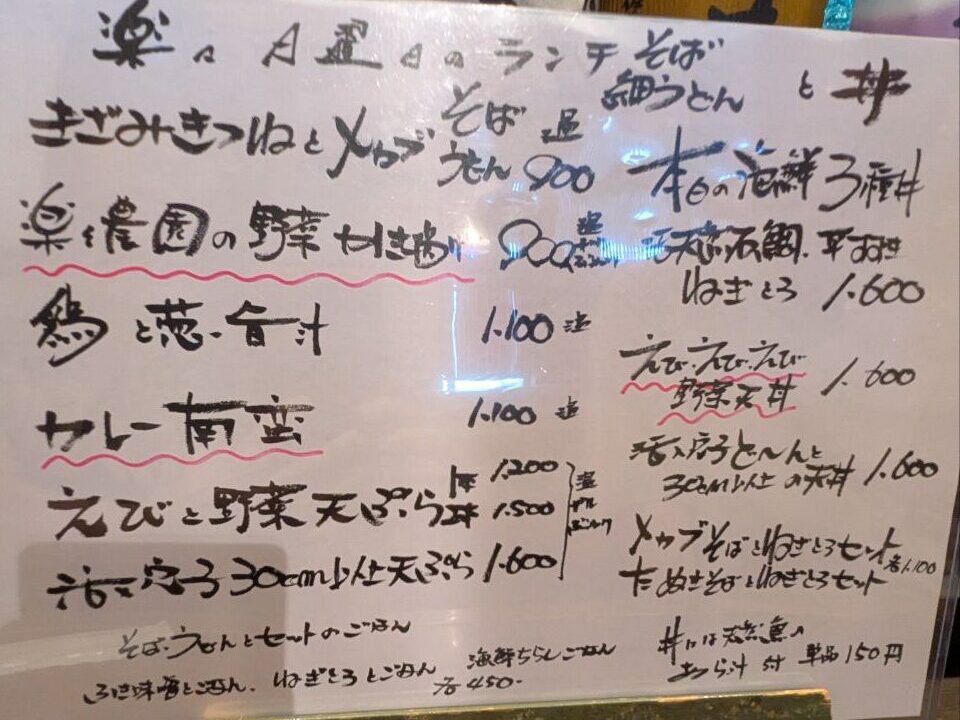 楽々 月曜日のランチ そば 細うどん と 丼
きざみきつねとメカブ そば うどん 温 900
楽々農園の野菜かき揚げ 900 温
鴨と葱の旨汁 1.100 温
カレー南蛮 1.100 温
えびと野菜天ぷら 1本 1.200
2本 1.500
活〆穴子30cm以上天ぷら 1.600
そば、うどんとセットのごはん
ふき味噌とごはん、ねぎとろとごはん
海鮮ちらしごはん
各450-
本日の海鮮3種丼
天然石鯛、平すずき
ねぎとろ 1.600
えび、えび、えび
野菜天丼 1.600
活〆穴子ど〜んと
30cm以上の天丼 1.600
メカブそばとねぎとろセット
たぬきそばとねぎとろセット 各1.100
丼には天然魚の
あら汁付 単品150円